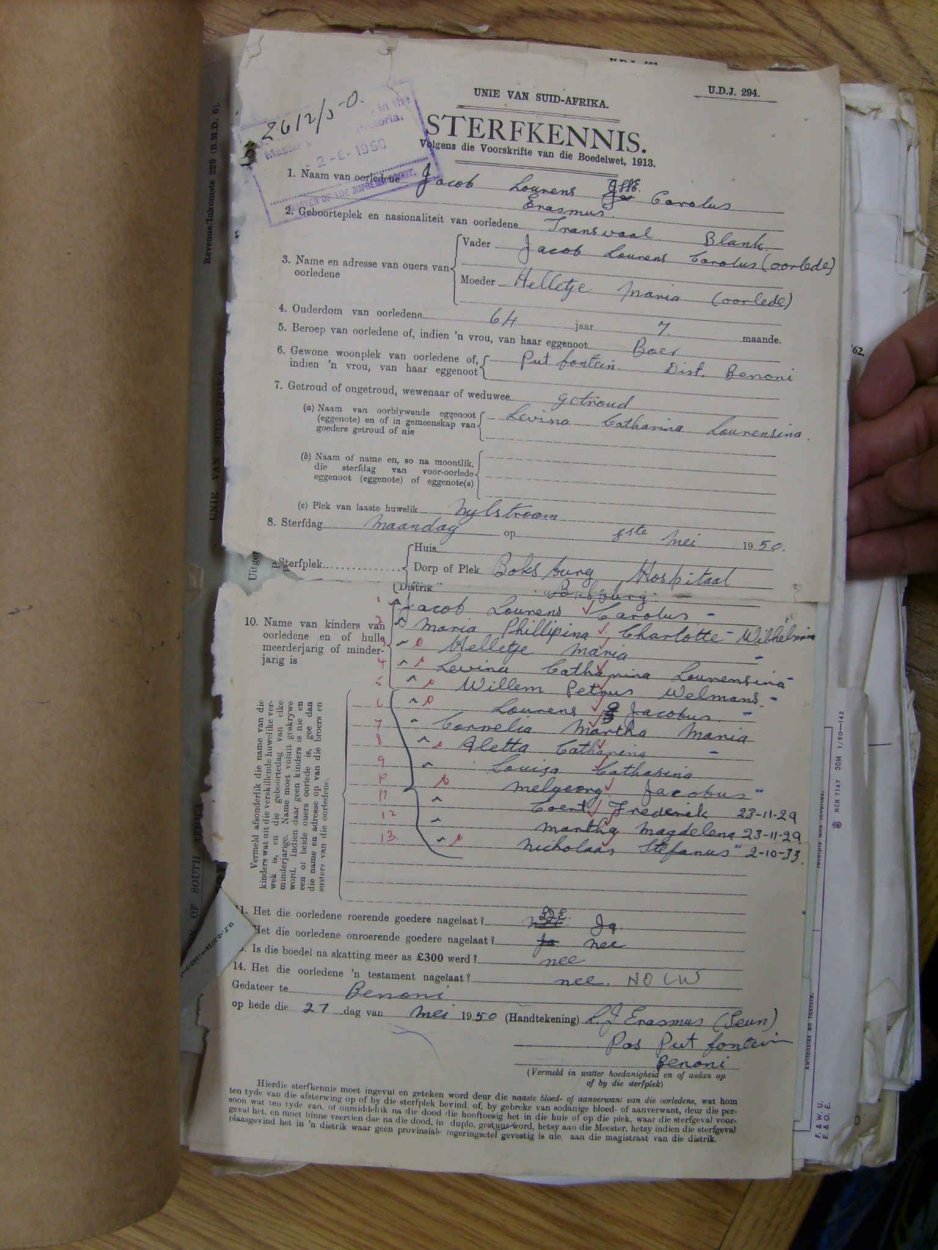 U.D.J. 294.
UNIE VAN SUID-AFRIKA.
STERFKENNIS.
Volgens die Voorskrifte van die Boedelwet, 1913.
2612/50.
1. Naam van oorledene Jacob Lourens Carolus
Erasmus
2. Geboorteplek en nasionaliteit van oorledene Transvaal Blank
3. Name en adresse van ouers van oorledene
Vader Jacob Lourens Carolus (oorlede)
Moeder Helletje Maria (oorlede)
4. Ouderdom van oorledene 64 jaar 7 maande.
5. Beroep van oorledene of, indien 'n vrou, van haar eggenoot Boer
6. Gewone woonplek van oorledene of, indien 'n vrou, van haar eggenoot Putfontein Dist. Benoni
7. Getroud of ongetroud, wewenaar of weduwee getroud
(a) Naam van oorblywende eggenoot (eggenote) en of in gemeenskap van goedere getroud of nie
Levina Catharina Lourensina
(b) Naam of name en, so na moontlik, die sterfdag van voor-oorlede eggenoot (eggenote) of eggenote(s)
(c) Plek van laaste huwelik Nylstroom
8. Sterfdag Maandag op 8ste Mei 1950.
Sterfplek
Huis
Dorp of Plek Boksburg Hospitaal
Distrik Boksburg
10. Name van kinders van oorledene en of hulle meerderjarig of minderjarig is
Vermeld afsonderlik die name van die kinders wat uit die verskillende huwelike verwek is, en die geboortedag van elke minderjarige. Name moet voluit geskrywe word. Indien daar geen kinders is nie en een of beide ouers oorlede is, gee dan die name en adresse op van die broers en susters van die oorledene.
1 Jacob Lourens Carolus
2 Maria Phillipina Charlotte Wilhelmina
3 Helletje Maria
4 Levina Catharina Lourensina
5 Willem Petrus Welmans
6 Lourens Jacobus
7 Cornelia Martha Maria
8 Aletta Catharina
9 Louisa Catharina
10 Jacobus
11 Coert Frederik 23-11-29
12 Martha Magdelena 23-11-29
13 Nicholaas Stefanus 2-10-33
11. Het die oorledene roerende goedere nagelaat? Ja
Het die oorledene onroerende goedere nagelaat? nee
Is die boedel na skatting meer as £300 werd? nee
14. Het die oorledene 'n testament nagelaat? nee. NO LW
Gedateer te Benoni
op hede die 27 dag van Mei 1950 (Handtekening) L.J Erasmus (Seun)
Pos Putfontein
Benoni
(Vermeld in watter hoedanigheid en of asdan op of by die sterfplek)
Hierdie sterfkennis moet ingevul en geteken word deur die naaste bloed- of aanverwant van die oorledene, wat hom
ten tyde van die afsterwing op of by die sterfplek bevind of, by gebreke van sodanige bloed- of aanverwant, deur die persoon
wat ten tyde van, of onmiddellik na die dood die hooftoesig het in die huis of op die plek, waar die sterfgeval voorgeval
het, en moet binne veertien dae na die dood, in duplo, gestuur word, hetsy aan die Meester, hetsy indien die sterfgeval
plaasgevind het in 'n distrik waar geen provinsiale regeringsetel gevestig is nie, aan die magistraat van die distrik.